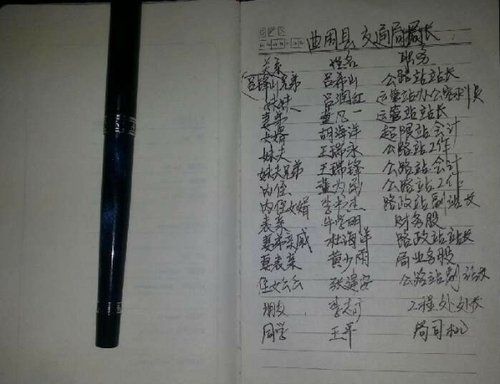 曲周县交通局局长
关系 姓名 职务
吕希山 公路站站长
吕润红 运管站办公
妻弟 运管站站长
女婿 胡海洋 超限站会计
妹夫 王瑞永 公路站工作
妹夫兄弟 王瑞锋 公路站会计
内侄 公路站工作
内侄女婿 路政站副站长
表亲 牛学明 财务股
妻弟亲戚 杜海洋 路政站站长
妻表亲 黄少雨 局业务股
侄女公公 张连安 公路站副站长
朋友 工程处处长
同学 王平 局司机